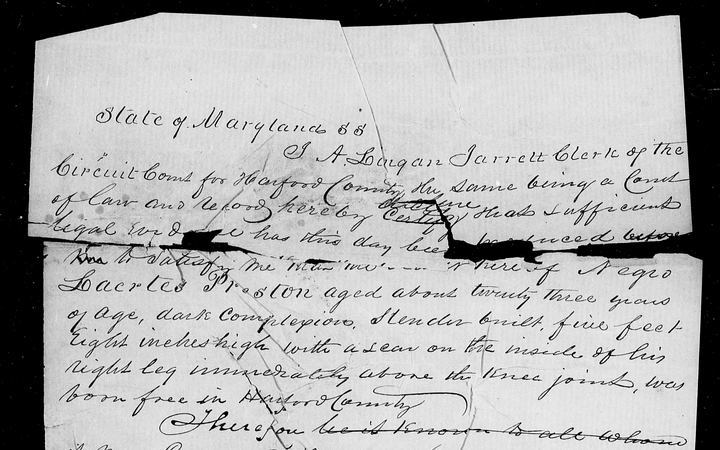 State of Maryland ss
I A. Lingan Jarrett Clerk of the
Circuit Court for Harford County, the same being a Court
of law and record, hereby Certify that sufficient
legal has this day been before
to satisfy me of Negro
Laertes Preston aged about twenty three years
of age, dark complexion, Slender built, five feet
Eight inches high with a scar on the inside of his
right leg immediately above the Knee joint, was
born free in Harford County
Therefore be it known to all whom